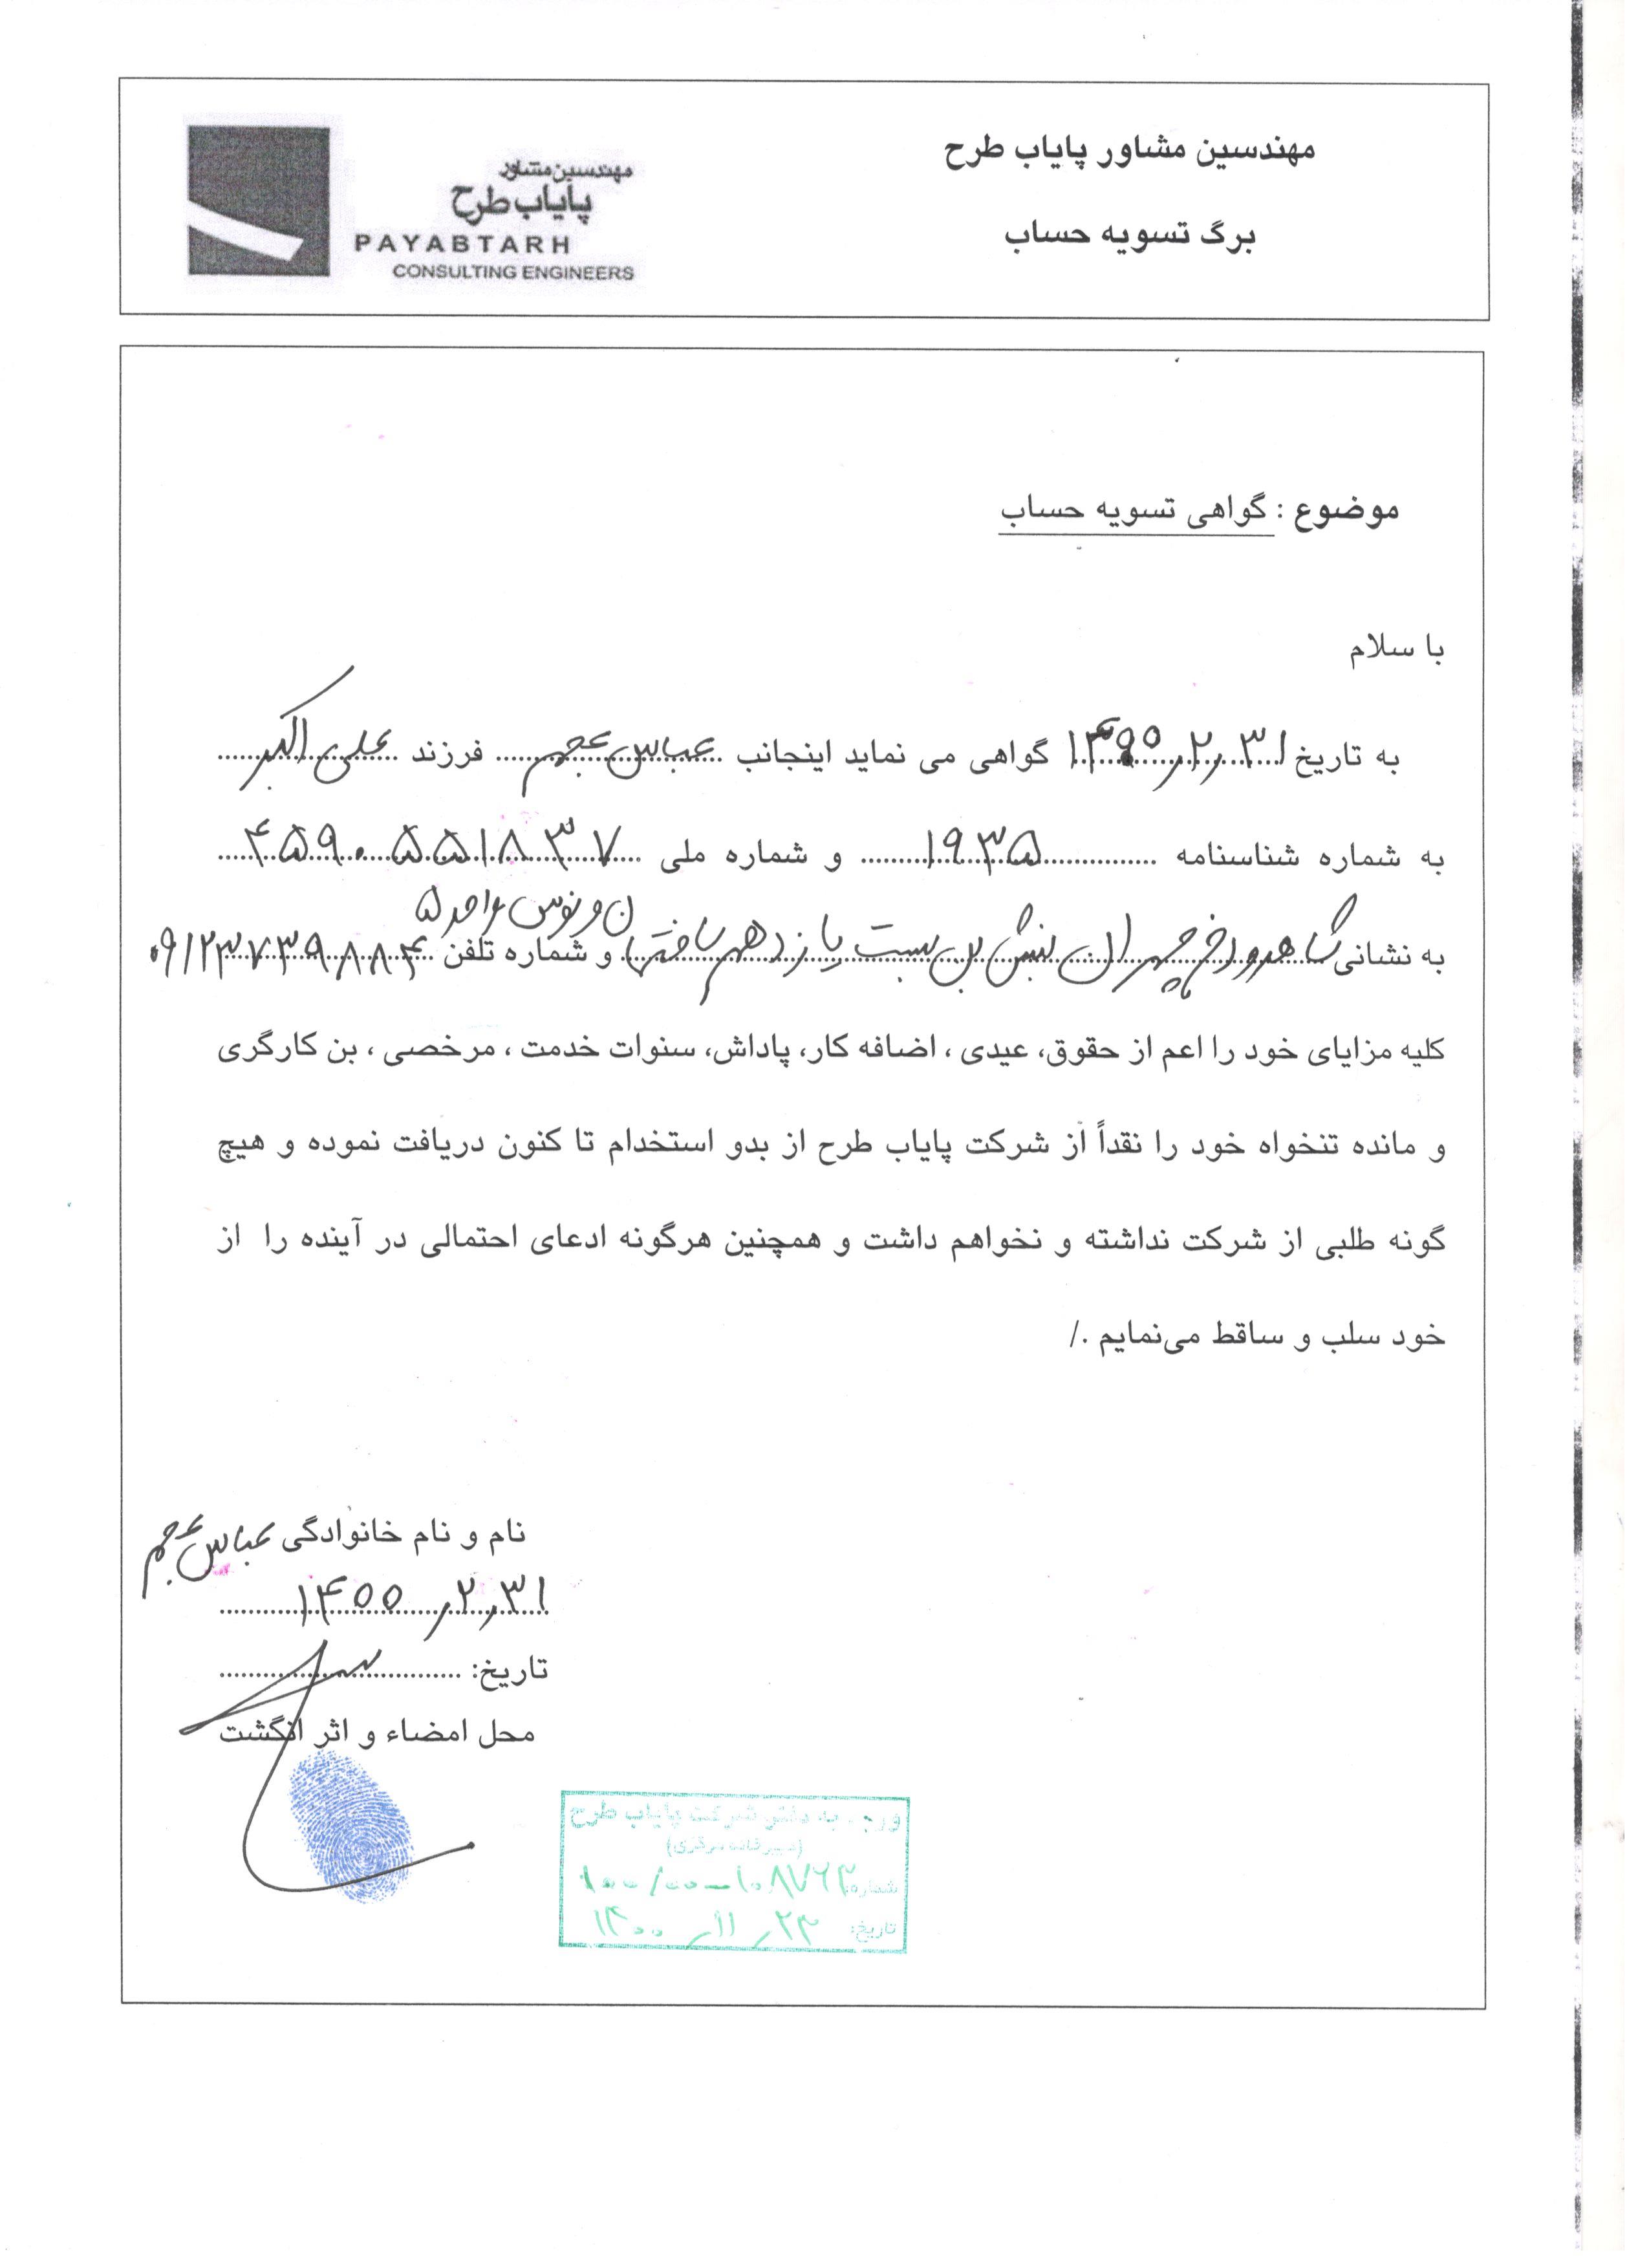 مهندسین مشاور پایاب طرح
برگ تسویه حساب
مهندسین مشاور
پایاب طرح
PAYABTARH
CONSULTING ENGINEERS
موضوع : گواهی تسویه حساب
با سلام
به تاریخ ۱۴۰۰/۲/۳۱ گواهی می نماید اینجانب عباس عجم فرزند علی اکبر
به شماره شناسنامه ۱۹۳۵ و شماره ملی ۴۵۹۰۵۵۱۸۳۷
به نشانی شاهرود خ چمران نبش بن بست یازدهم ساختمان ونوس واحد ۵ و شماره تلفن ۰۹۱۲۳۷۳۹۸۸۴
کلیه مزایای خود را اعم از حقوق، عیدی ، اضافه کار، پاداش، سنوات خدمت ، مرخصی ، بن کارگری
و مانده تنخواه خود را نقداً از شرکت پایاب طرح از بدو استخدام تا کنون دریافت نموده و هیچ
گونه طلبی از شرکت نداشته و نخواهم داشت و همچنین هرگونه ادعای احتمالی در آینده را از
خود سلب و ساقط می‌نمایم ./
نام و نام خانوادگی عباس عجم
۱۴۰۰/۲/۳۱
تاریخ:
محل امضاء و اثر انگشت
به دفتر شرکت پایاب طرح
(دبیرخانه مرکزی)
شماره: ۱۰۰/۰۰-۱۰۸۷۶۳
تاریخ: ۱۴۰۰/۱۱/۲۳